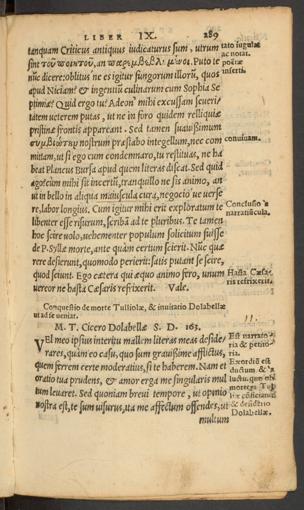 LIBER IX. 289
tanquam Criticus antiquus iudicaturus sum, utrum
sint τοῦ ποιητοῦ, an
tato iugulas
ac notat.
poëtæ
inserti.
nũc dicere: oblitus ne es igitur fungorum illorũ, quos
apud Niciam? & ingeniũ culinarum cum Sophia Se
ptimiæ? Quid ergo tu? Adeon' mihi excussam seueri/
tatem ueterem putas, ut ne in foro quidem relliquiæ
pristinæ frontis appareant. Sed tamen suauissimum
συμβιώτην nostrum præstabo integellum, nec com
conuiuam.
mittam, ut si ego eum condemnaro, tu restituas, ne ha
beat Plancus Bursa apud quem literas discat. Sed quid
ago? cum mihi sit incertũ, tranquillo ne sis animo, an
ut in bello in aliqua maiuscula cura, negocio ue uerse
Conclusio à
narratiũcula.
re, labor longius. Cum igitur mihi erit exploratum te
libenter esse risurum, scribã ad te pluribus. Te tamen
hoc scire uolo, uehementer populum solicitum fuisse
de P. Syllæ morte, ante quàm certum scierit. Nũc quæ
rere desierunt, quomodo perierit: satis putant se scire,
quod sciunt. Ego cætera qui æquo animo fero, unum
Hasta Cæsa
ris refrixerit.
uereor ne hasta Cæsaris refrixerit. Vale.
Conquestio de morte Tulliolæ, & inuitatio Dolabellæ
ut ad se ueniat.
M. T. Cicero Dolabellæ S. D. 163.
11.
VEl meo ipsius interitu mallem literas meas deside/
rares, quàm eo casu, quo sum grauissimè afflictus,
quem ferrem certe moderatius, si te haberem. Nam et
oratio tua prudens, & amor erga me singularis mul
tum leuaret. Sed quoniam breui tempore, ut opinio
nostra est, te sum uisurus, ita me affectum offendes, ut
multum
Est narrato
ria & petito
ria.
Exordiũ est
ductum & à
luctu, quem ob
mortem Tul
liæ
& desiderio
Dolabellæ.